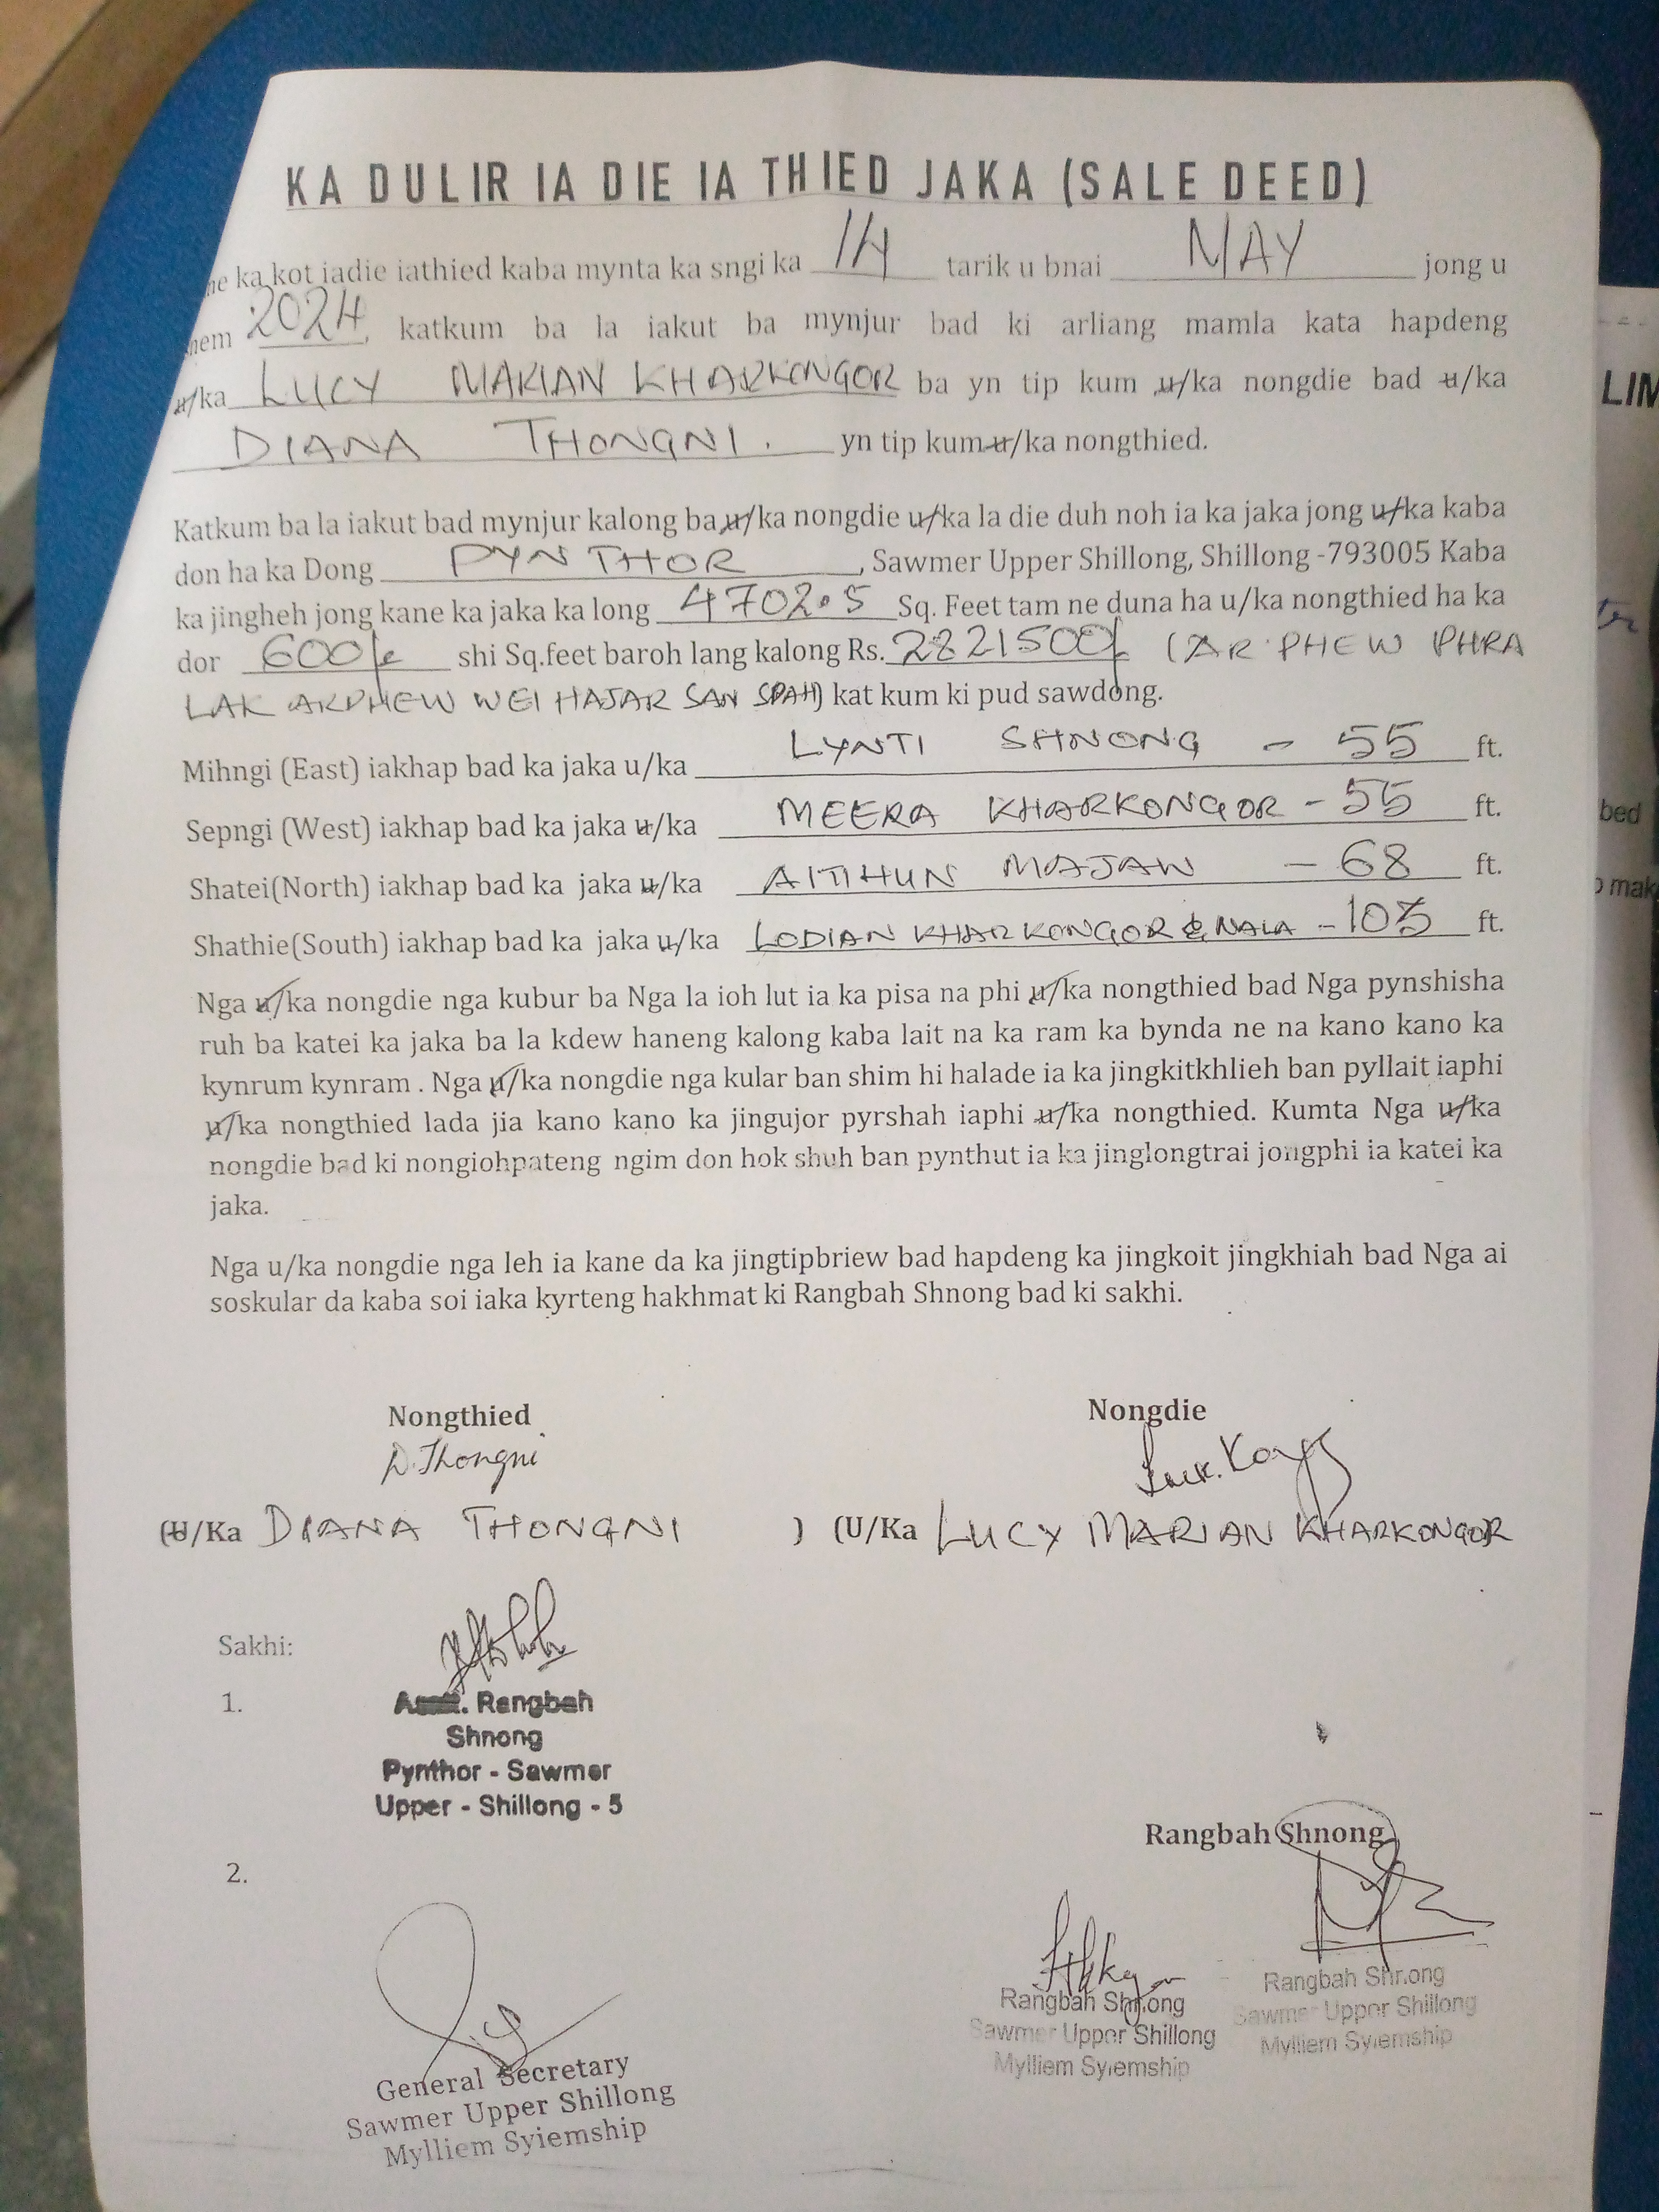 KA DULIR IA DIE IA THIED JAKA (SALE DEED)
ka kot iadie iathied kaba mynta ka sngi ka 14 tarik u bnai MAY jong u
2024, katkum ba la iakut ba mynjur bad ki arliang mamla kata hapdeng
u/ka LUCY MARIAN KHARKONGOR ba yn tip kum u/ka nongdie bad u/ka
DIANA THONGNI. yn tip kum u/ka nongthied.
Katkum ba la iakut bad mynjur kalong ba u/ka nongdie u/ka la die duh noh ia ka jaka jong u/ka kaba
don ha ka Dong PYNTHOR, Sawmer Upper Shillong, Shillong -793005 Kaba
ka jingheh jong kane ka jaka ka long 4702.5 Sq. Feet tam ne duna ha u/ka nongthied ha ka
dor 600/- shi Sq.feet baroh lang kalong Rs. 2821500/- (AR PHEW PHRA
LAK ARPHEW WEI HAJAR SAN SPAH) kat kum ki pud sawdong.
Mihngi (East) iakhap bad ka jaka u/ka LYNTI SHNONG - 55 ft.
Sepngi (West) iakhap bad ka jaka u/ka MEERA KHARKONGOR - 55 ft.
Shatei(North) iakhap bad ka jaka u/ka AITIHUN MAJAW - 68 ft.
Shathie(South) iakhap bad ka jaka u/ka LODIAN KHARKONGOR & NALA - 103 ft.
Nga u/ka nongdie nga kubur ba Nga la ioh lut ia ka pisa na phi u/ka nongthied bad Nga pynshisha
ruh ba katei ka jaka ba la kdew haneng kalong kaba lait na ka ram ka bynda ne na kano kano ka
kynrum kynram . Nga u/ka nongdie nga kular ban shim hi halade ia ka jingkitkhlieh ban pyllait iaphi
u/ka nongthied lada jia kano kano ka jingujor pyrshah iaphi u/ka nongthied. Kumta Nga u/ka
nongdie bad ki nongiohpateng ngim don hok shuh ban pynthut ia ka jinglongtrai jongphi ia katei ka
jaka.
Nga u/ka nongdie nga leh ia kane da ka jingtipbriew bad hapdeng ka jingkoit jingkhiah bad Nga ai
soskular da kaba soi iaka kyrteng hakhmat ki Rangbah Shnong bad ki sakhi.
Nongthied Nongdie
D. Thongni
(U/Ka DIANA THONGNI ) (U/Ka LUCY MARIAN KHARKONGOR
Sakhi:
1.
Rangbah
Shnong
Pynthor - Sawmer
Upper - Shillong - 5
Rangbah Shnong
2.
Rangbah Shnong
Sawmer Upper Shillong
Mylliem Syiemship
Rangbah Shnong
Sawmer Upper Shillong
Mylliem Syiemship
General Secretary
Sawmer Upper Shillong
Mylliem Syiemship
LIM
bed